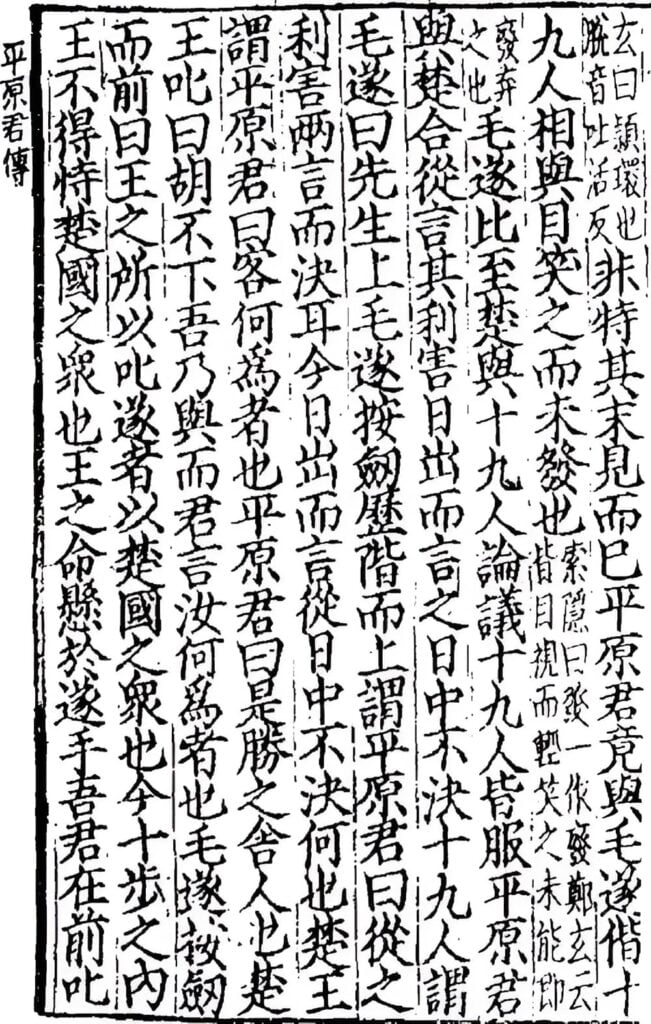 玄曰穎環也脫音吐活反非特其末見而已平原君竟與毛遂偕十
九人相與目笑之而未發也索隱曰發一作廢鄭玄云皆目視而輕笑之未能即
發弃之也毛遂比至楚與十九人論議十九人皆服平原君
與楚合從言其利害日出而言之日中不決十九人謂
毛遂曰先生上毛遂按劒歷階而上謂平原君曰從之
利害兩言而決耳今日出而言從日中不決何也楚王
謂平原君曰客何爲者也平原君曰是勝之舍人也楚
王叱曰胡不下吾乃與而君言汝何爲者也毛遂按劒
而前曰王之所以叱遂者以楚國之衆也今十步之內
王不得恃楚國之衆也王之命懸於遂手吾君在前叱
平原君傳